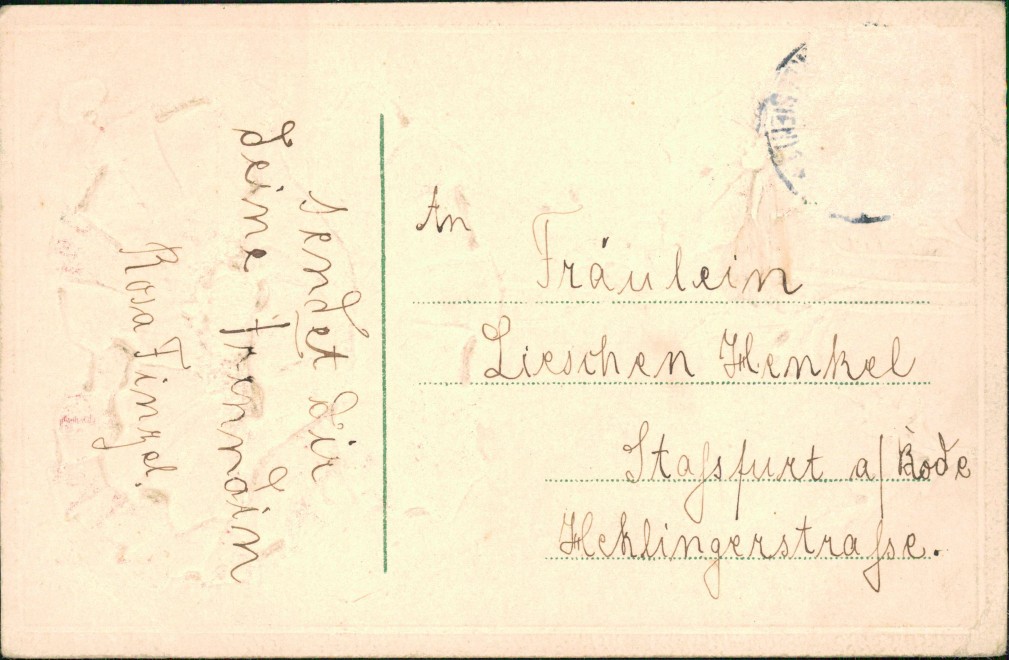 sendet dir
Deine Freundin
Rosa Finzel.
An
Fräulein
Lieschen Henkel
Stassfurt a/Bode
Heklingerstrasse.